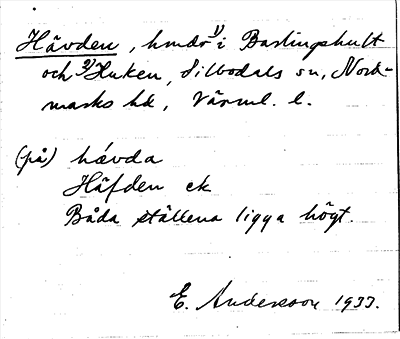 Hävden, hmdr 1) i Bastingshult
och 2) Huken, Silbodals sn, Nord-
marks hd, Värml. l.
(på) hævda
Häfden ek
Båda ställena ligga högt.
E. Andersson 1933.